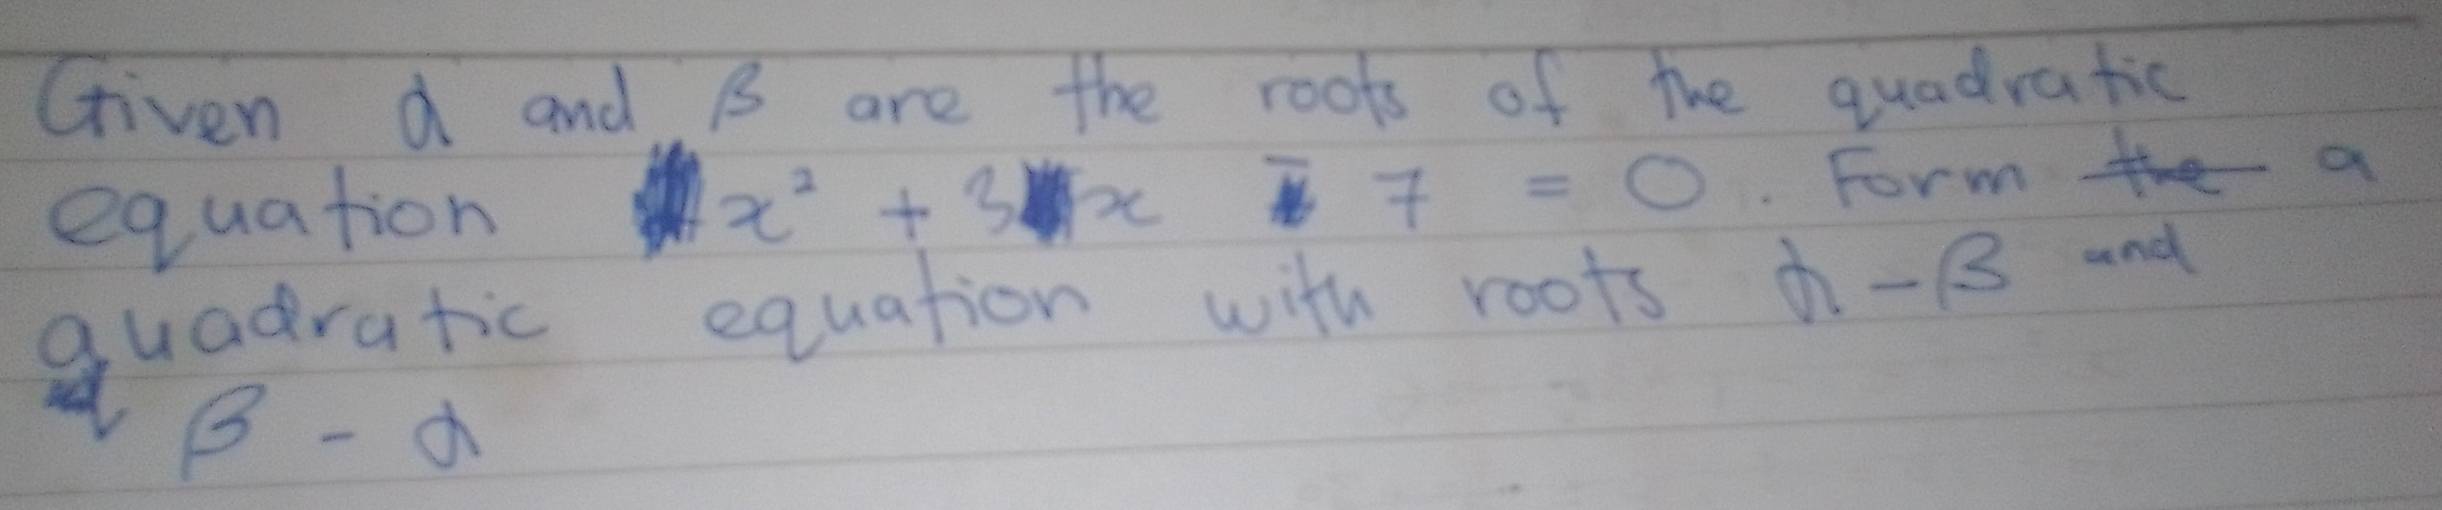 Given α and β are the roots of the quadratic
equation x² + 3x - 7 = 0. Form the a
quadratic equation with roots α - β and
β - α